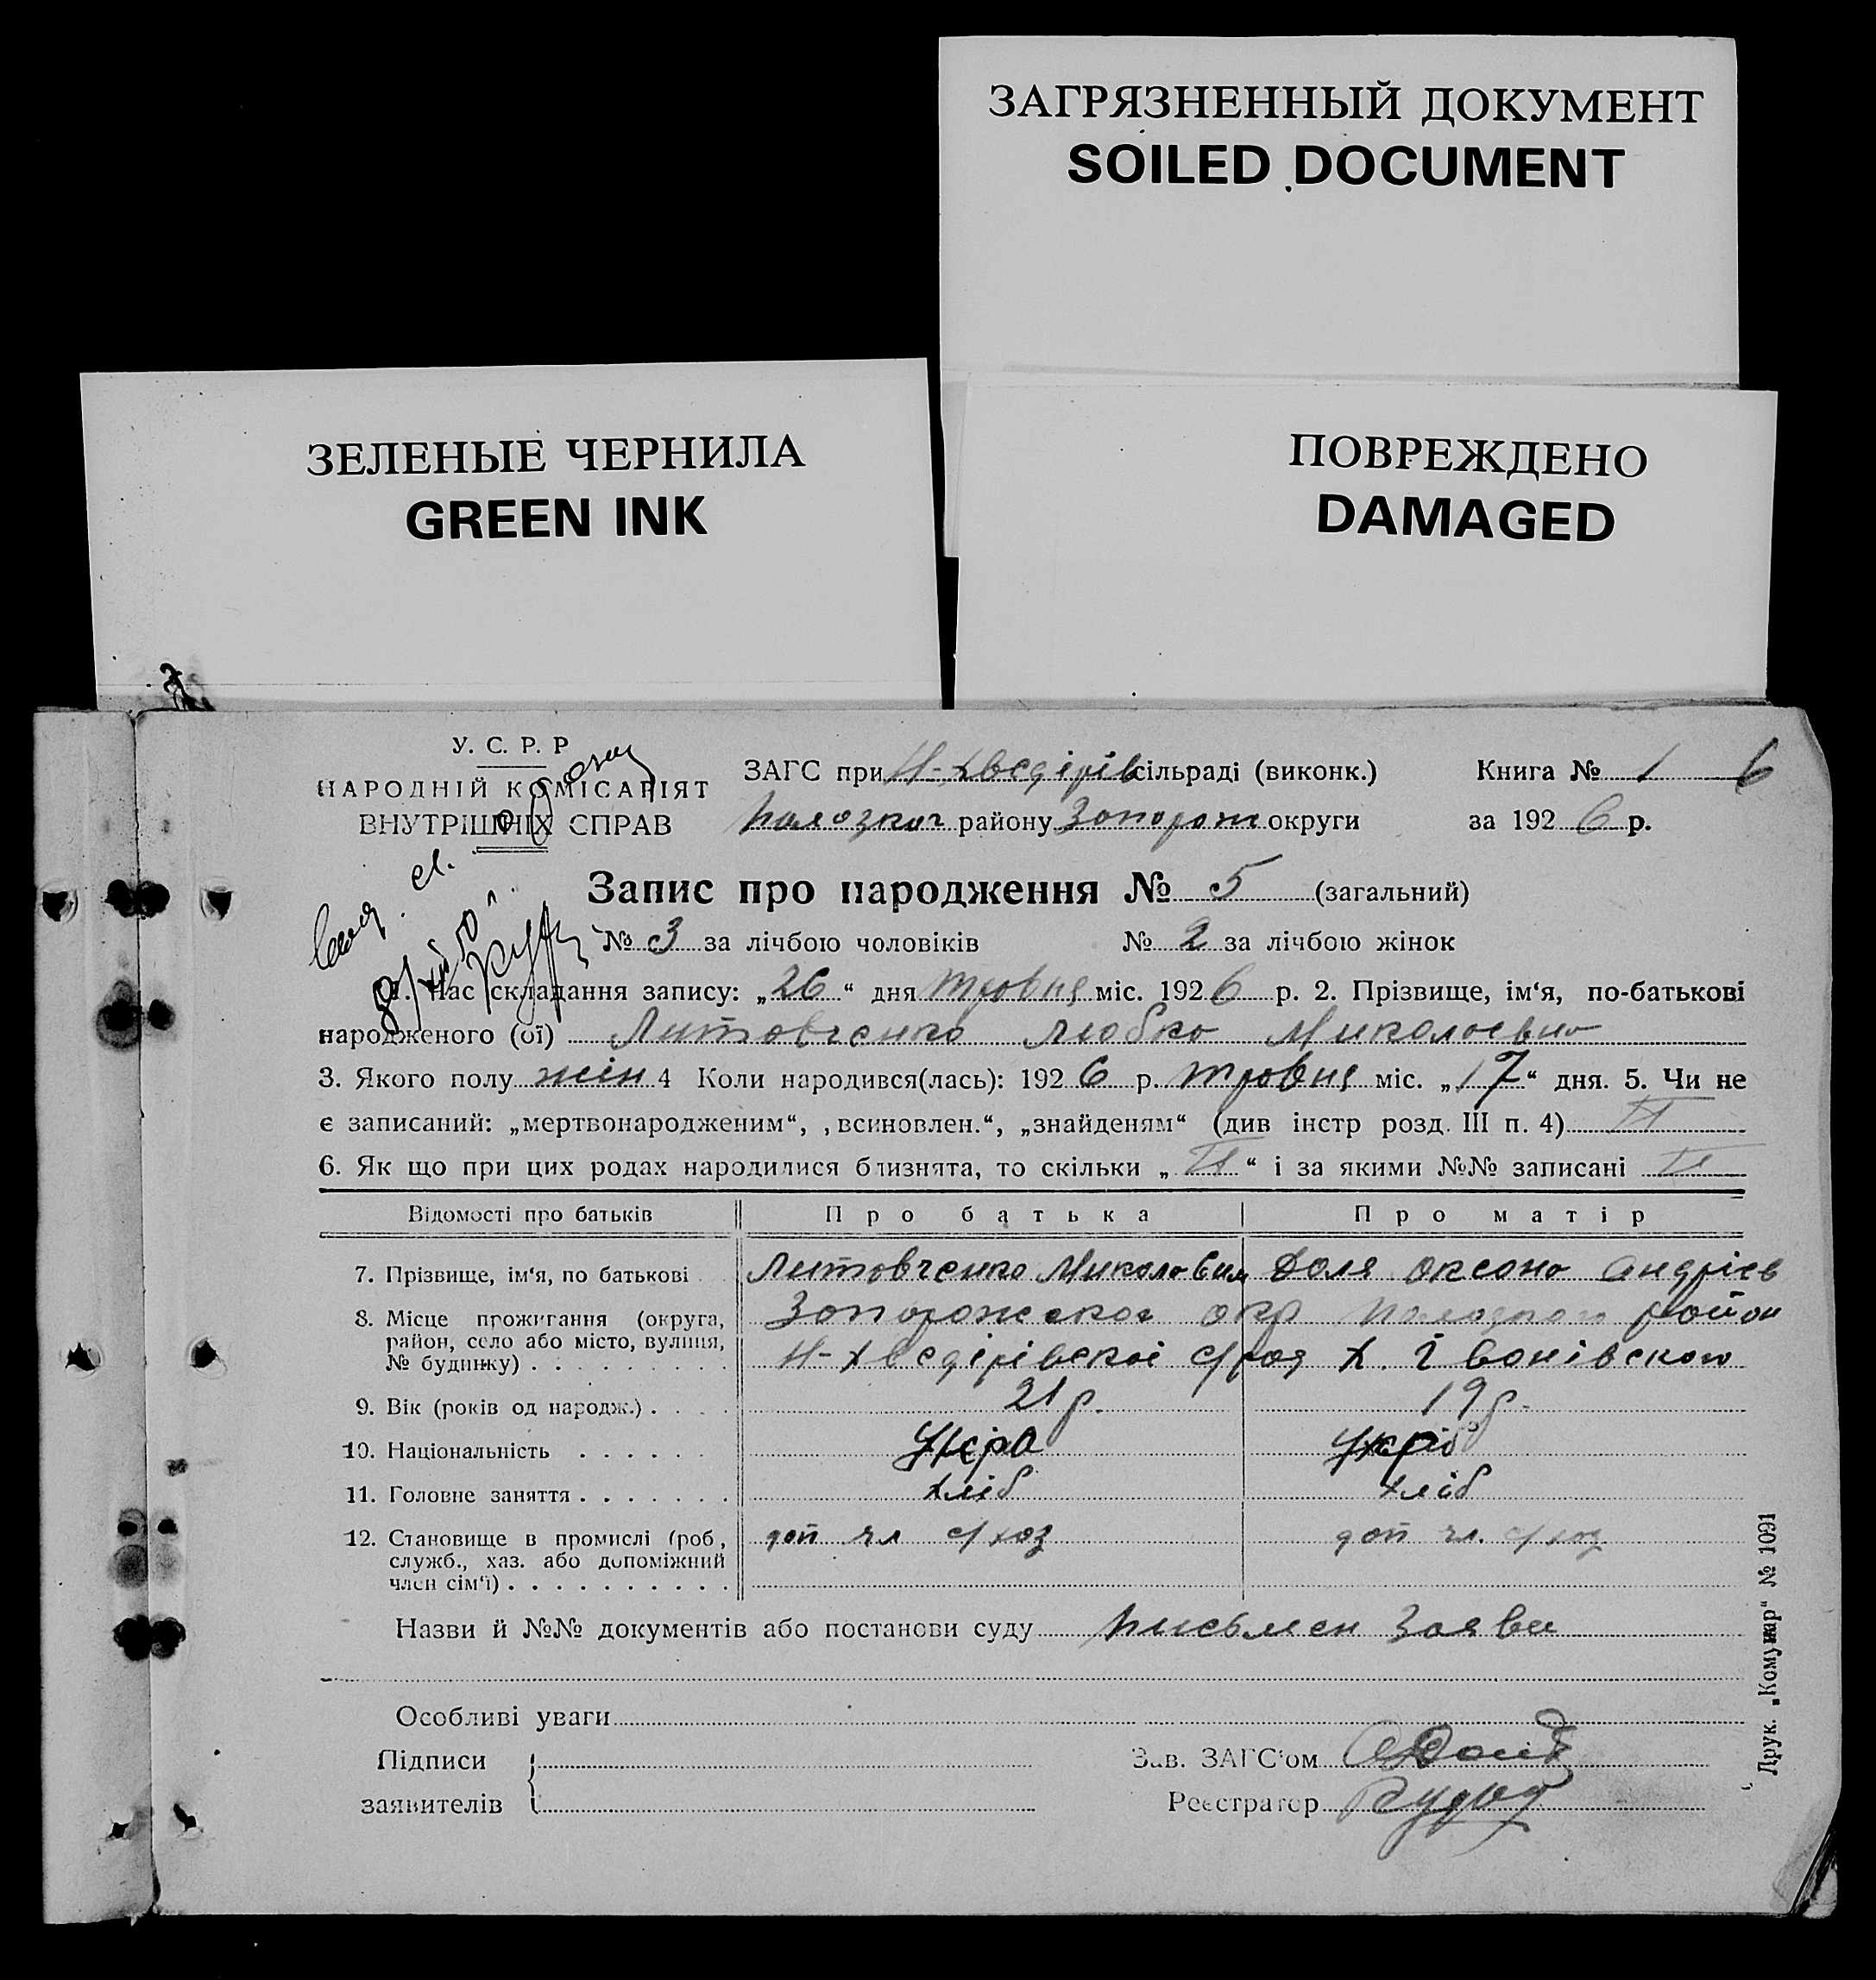 ЗАГРЯЗНЕННЫЙ ДОКУМЕНТ
SOILED DOCUMENT
ЗЕЛЕНЫЕ ЧЕРНИЛА
GREEN INK
ПОВРЕЖДЕНО
DAMAGED
У. С. Р. Р
НАРОДНІЙ КОМІСАРІЯТ
ВНУТРІШНІХ СПРАВ
ЗАГС при Н-Хведірів сільраді (виконк.)
району Запорож округи
Книга № 1 6
за 1926 р.
Запис про народження № 5 (загальний)
№ 3 за лічбою чоловіків № 2 за лічбою жінок
1. Час складання запису: „26“ дня травня міс. 1926 р. 2. Прізвище, ім‘я, по-батькові
народженого (ої) Литовченко Любка Миколаєвна
3. Якого полу жін 4 Коли народився(лась): 1926 р. травня міс. „17“ дня. 5. Чи не
є записаний: „мертвонародженим“, „всиновлен.“, „знайденям“ (див інстр розд. III п. 4)
6. Як що при цих родах народилися близнята, то скільки „ “ і за якими №№ записані
Відомості про батьків Про батька Про матір
7. Прізвище, ім‘я, по батькові Литовченко Микола Доля Оксана Андрієв
8. Місце прожигання (округа, район, село або місто, вулиця, № будинку) Запорожськог окр район
Н-Хведірівської с/рад х. Івонівського
9. Вік (років од народж.) 21 р. 19 р.
10. Національність Укра Украі
11. Головне заняття хліб хліб
12. Становище в промислі (роб, служб., хаз. або допоміжний член сім‘ї) доп чл с/хоз доп чл. с/хоз
Назви й №№ документів або постанови суду письмен заява
Особливі уваги
Підписи
заявителів
Зав. ЗАГС‘ом
Реєстратор
Друк. „Комунар“ № 1091